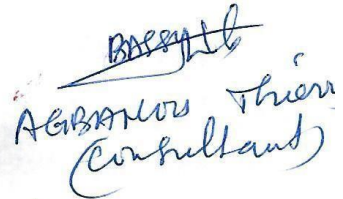 AGBANOU Thierr
(Consultant)